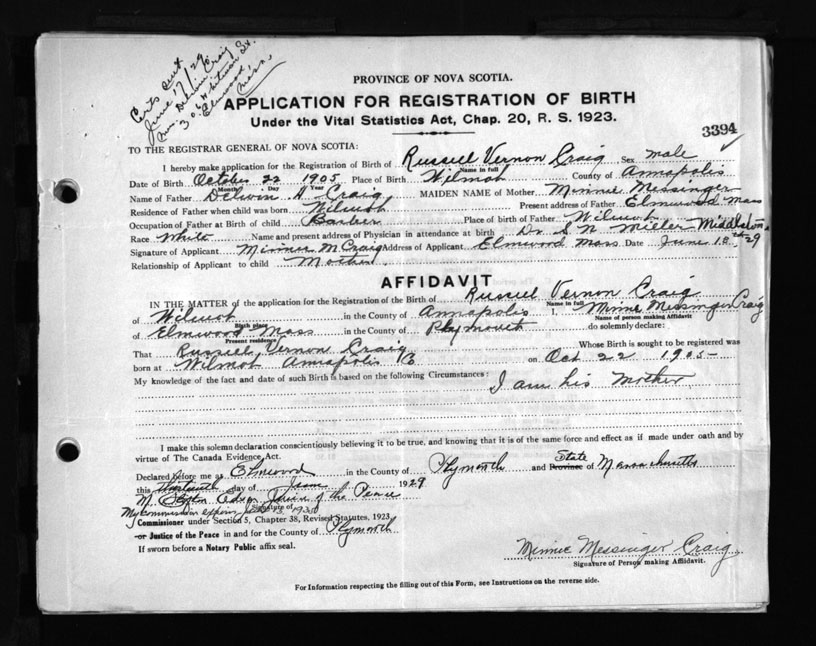 Certs sent
June 17/29
Mrs. Delwin Craig
306 Whitman St.
Elmwood,
Mass.
PROVINCE OF NOVA SCOTIA.
APPLICATION FOR REGISTRATION OF BIRTH
Under the Vital Statistics Act, Chap. 20, R. S. 1923.
3394
TO THE REGISTRAR GENERAL OF NOVA SCOTIA:
I hereby make application for the Registration of Birth of Russell Vernon Craig Sex male
Name in full
Date of Birth October 22 1905 Place of Birth Wilmot County of Annapolis
Month Day Year
Name of Father Delwin H Craig MAIDEN NAME of Mother Minnie Messinger
Residence of Father when child was born Wilmot Present address of Father Elmwood Mass
Occupation of Father at Birth of child Barber Place of birth of Father Wilmot
Race White Name and present address of Physician in attendance at birth Dr. S N Miller Middleton
Signature of Applicant Minnie M Craig Address of Applicant Elmwood Mass Date June 13, 1929
Relationship of Applicant to child Mother
AFFIDAVIT
IN THE MATTER of the application for the Registration of the Birth of Russell Vernon Craig
Name in full
of Wilmot in the County of Annapolis I, Minnie Messinger Craig
Birth place Name of person making Affidavit
of Elmwood Mass in the County of Plymouth do solemnly declare:
Present residence
That Russell Vernon Craig Whose Birth is sought to be registered was
born at Wilmot Annapolis Co on Oct 22 1905-
My knowledge of the fact and date of such Birth is based on the following Circumstances: I am his Mother
I make this solemn declaration conscientiously believing it to be true, and knowing that it is of the same force and effect as if made under oath and by
virtue of The Canada Evidence Act.
Declared before me as Elmwood in the County of Plymouth and State Province of Massachusetts
this thirteenth day of June 1929
M Edson Justice of the Peace
Signature of
My commission expires
Commissioner under Section 5, Chapter 38, Revised Statutes, 1923
or Justice of the Peace in and for the County of Plymouth
If sworn before a Notary Public affix seal.
Minnie Messinger Craig
Signature of Person making Affidavit.
For Information respecting the filling out of this Form, see Instructions on the reverse side.